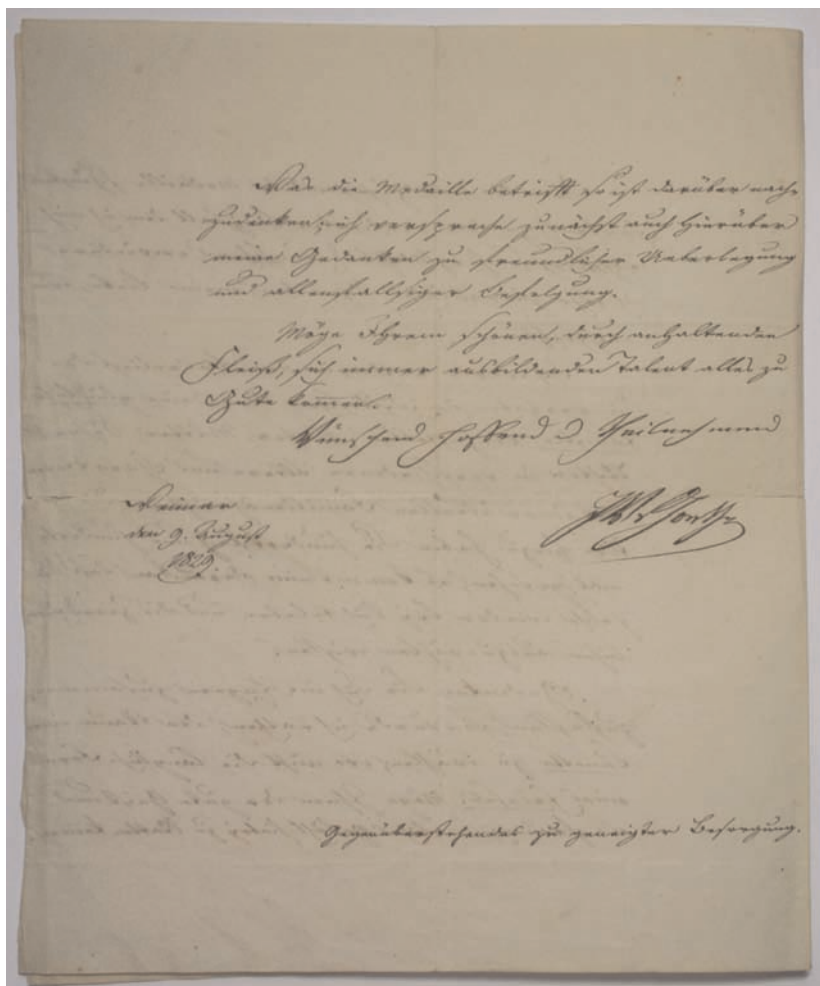 Was die Medaille betrifft so ist darüber nach-
zudenken; ich verspreche zunächst auch hierüber
meine Gedanken zu freundlicher Ueberlegung
und allenfallsiger Befolgung.
Möge Ihrem schönen, durch anhaltenden
Fleiß, sich immer ausbildenden Talent alles zu
Gute kommen.
Wünschend hoffend u theilnehmend
Weimar
JWvGoethe
den 9. August
1829.
Gegenüberstehendes zu geneigter Besorgung.